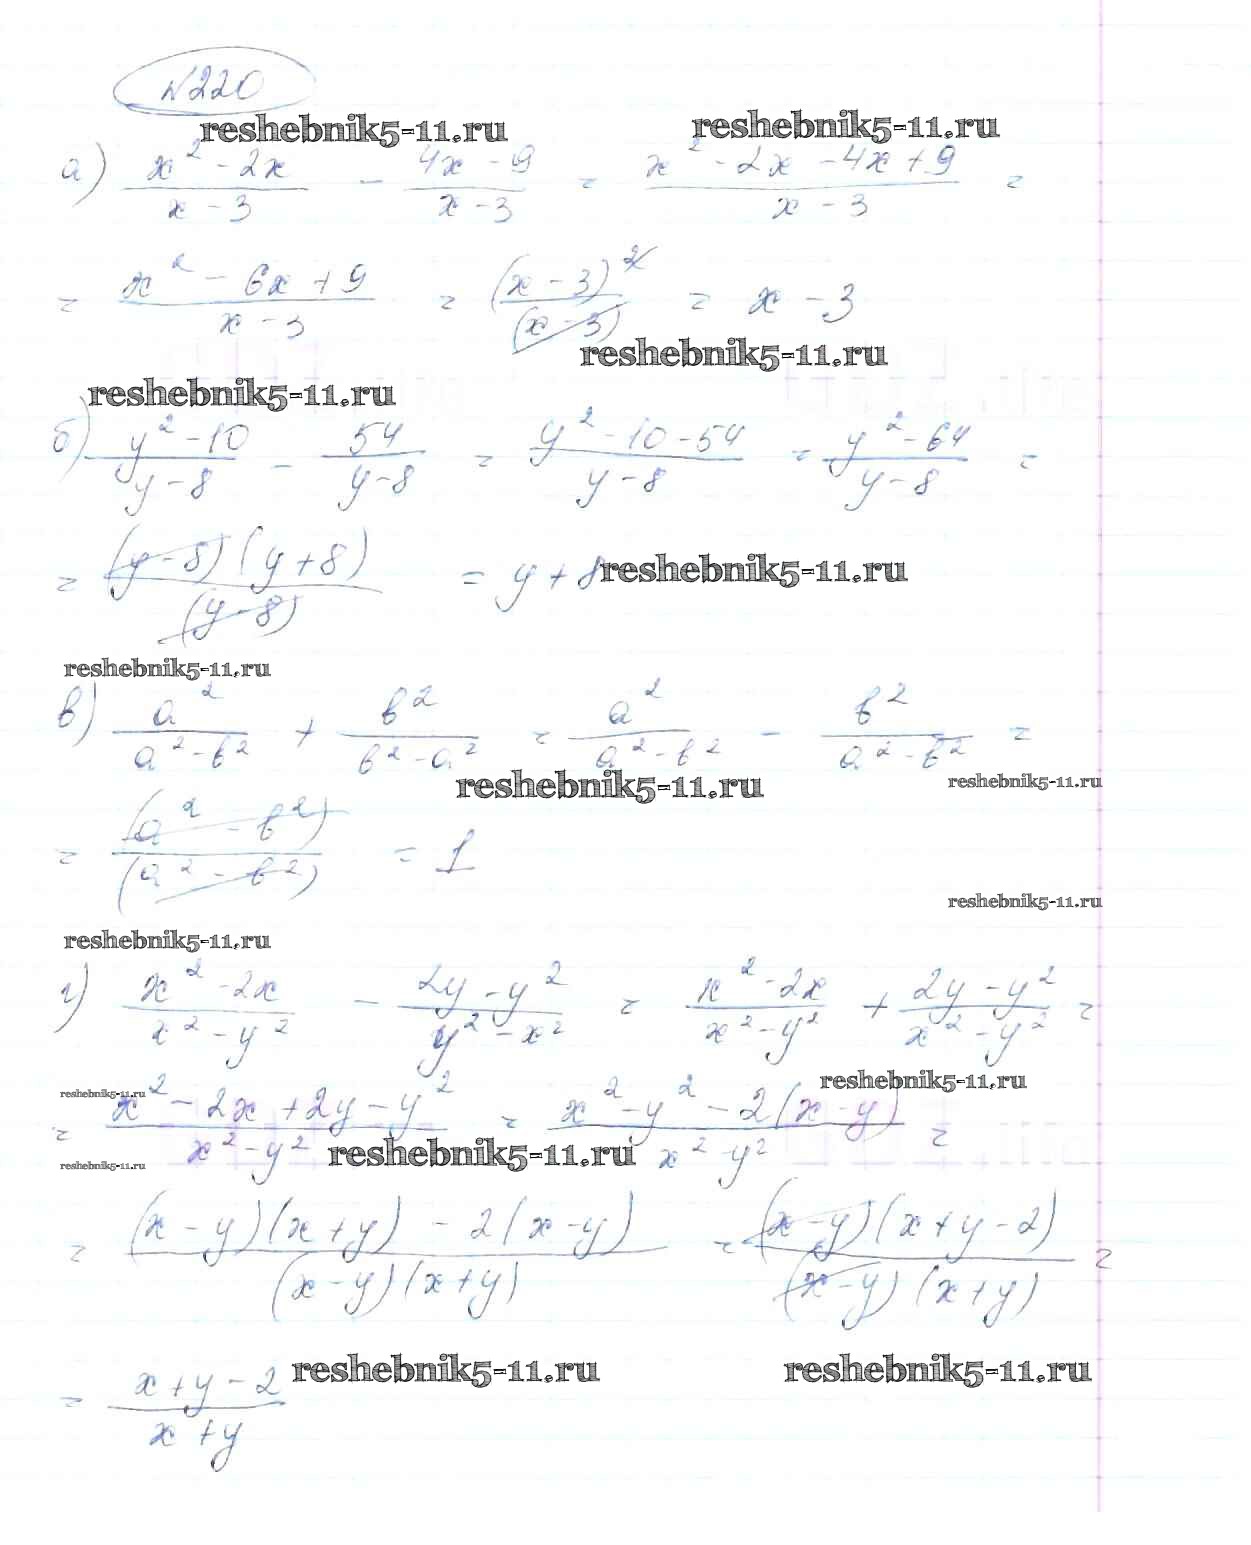 №220
reshebnik5-11.ru reshebnik5-11.ru
а) (x² - 2x)/(x - 3) - (4x - 9)/(x - 3) = (x² - 2x - 4x + 9)/(x - 3) =
= (x² - 6x + 9)/(x - 3) = (x - 3)²/(x - 3) = x - 3
reshebnik5-11.ru
reshebnik5-11.ru
б) (y² - 10)/(y - 8) - 54/(y - 8) = (y² - 10 - 54)/(y - 8) = (y² - 64)/(y - 8) =
= (y - 8)(y + 8)/(y - 8) = y + 8 reshebnik5-11.ru
reshebnik5-11.ru
в) a²/(a² - b²) + b²/(b² - a²) = a²/(a² - b²) - b²/(a² - b²) =
reshebnik5-11.ru reshebnik5-11.ru
= (a² - b²)/(a² - b²) = 1
reshebnik5-11.ru
reshebnik5-11.ru
г) (x² - 2x)/(x² - y²) - (2y - y²)/(y² - x²) = (x² - 2x)/(x² - y²) + (2y - y²)/(x² - y²) =
reshebnik5-11.ru reshebnik5-11.ru
= (x² - 2x + 2y - y²)/(x² - y²) = (x² - y² - 2(x - y))/(x² - y²) =
reshebnik5-11.ru reshebnik5-11.ru
= ((x - y)(x + y) - 2(x - y))/((x - y)(x + y)) = (x - y)(x + y - 2)/((x - y)(x + y)) =
reshebnik5-11.ru reshebnik5-11.ru
= (x + y - 2)/(x + y)